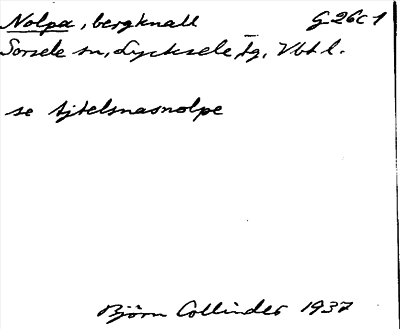 Nolpa, bergknall G 26c 1
Sorsele sn, Lycksele tg, Vbtl.
se tjtelsnasnolpe
Björn Collinder 1937